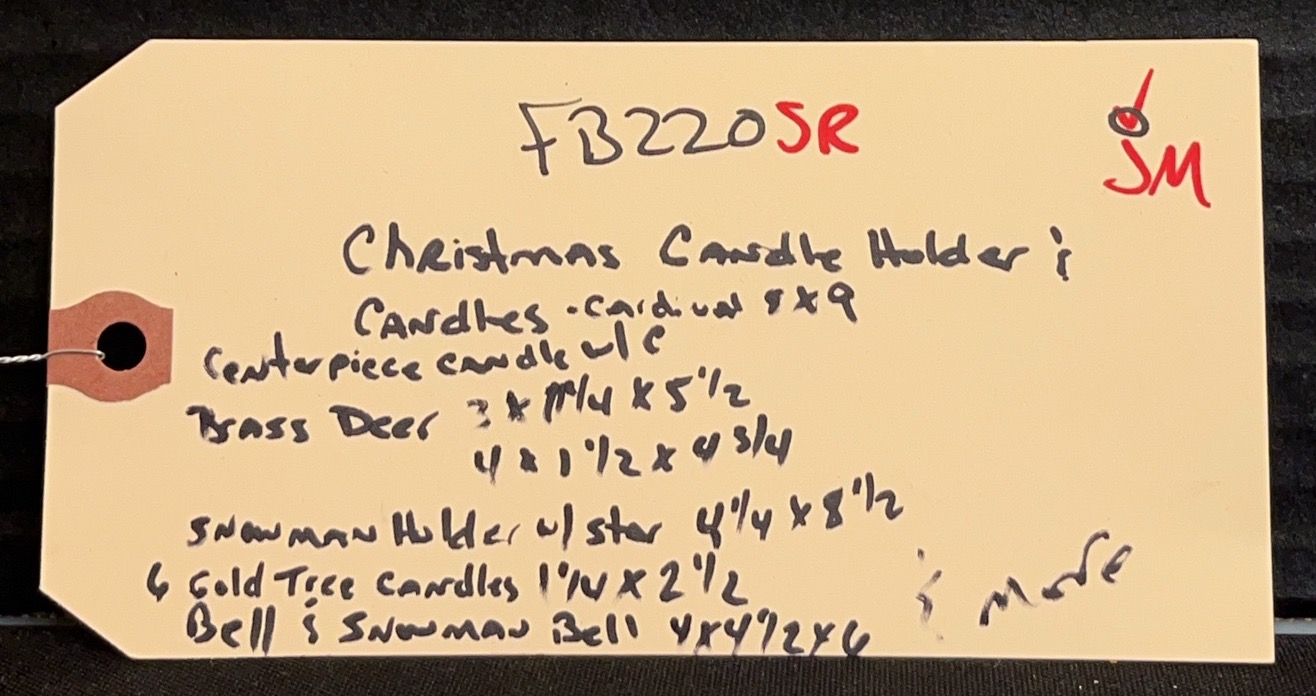 FB220SR
SM
Christmas Candle Holder &
Candles - Cardinal 8 x 9
Centerpiece candle w/ C
Brass Deer 3 x 1 1/4 x 5 1/2
4 x 1 1/2 x 4 3/4
Snowman Holder w/ star 4 1/4 x 8 1/2
6 Gold Tree Candles 1 1/4 x 2 1/2
Bell & Snowman Bell 4 x 4 1/2 x 6
& More